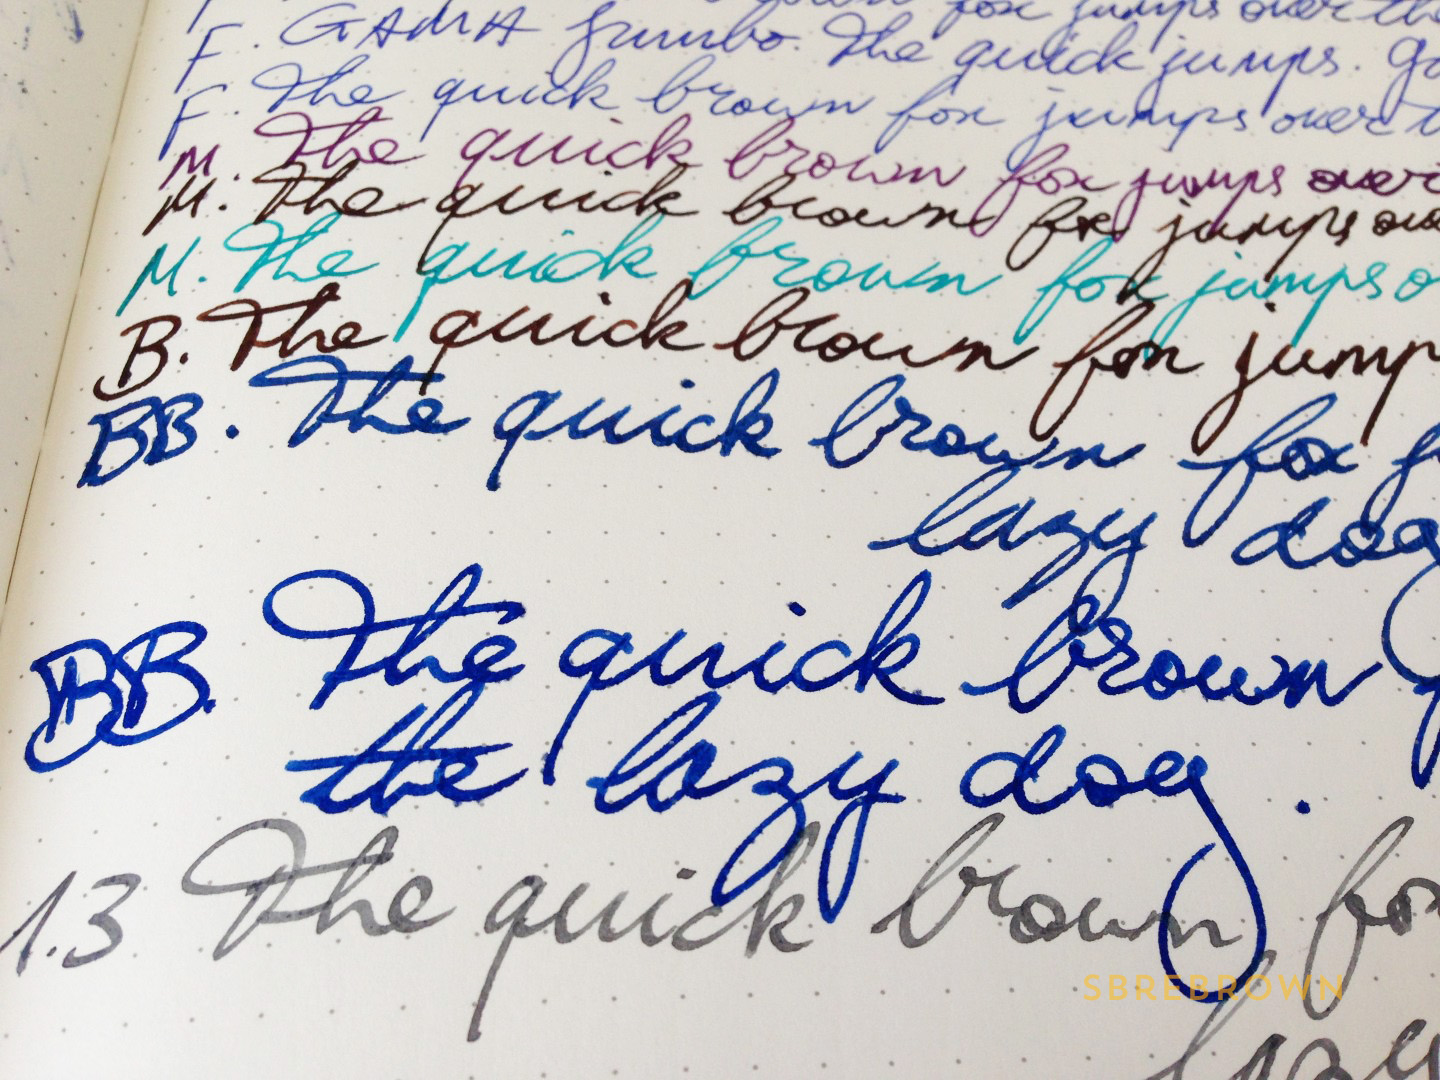 F. fox jumps over the
F. GAMA Jumbo. The quick jumps.
F. The quick brown fox jumps over t
M. The quick brown fox jumps over
M. The quick brown fox jumps ove
M. The quick brown fox jumps o
B. The quick brown fox jump
BB. The quick brown fox j
lazy dog
BB. The quick brown
the lazy dog.
1.3 The quick brown fo
lazy
SBREBROWN